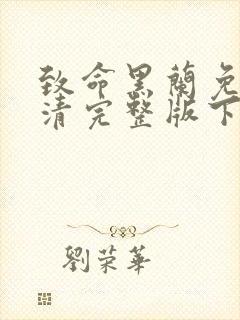 致命黑蘭免
清完整版下
劉荣華